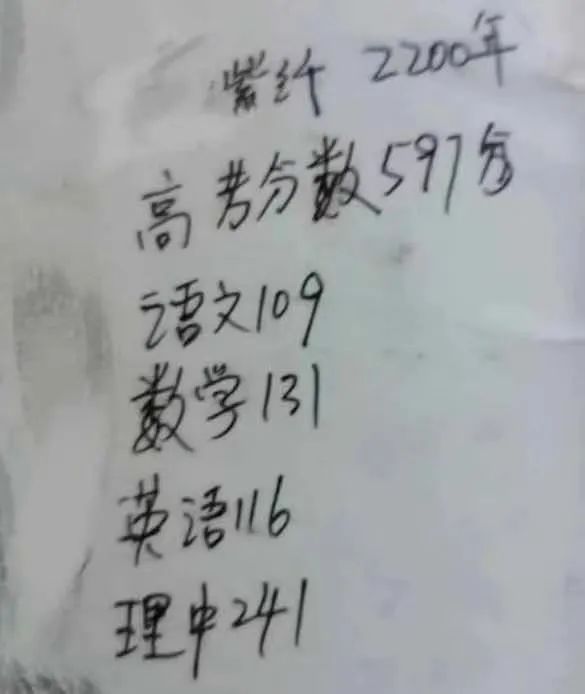 紫纤 2200年
高考分数597分
语文109
数学131
英语116
理申241